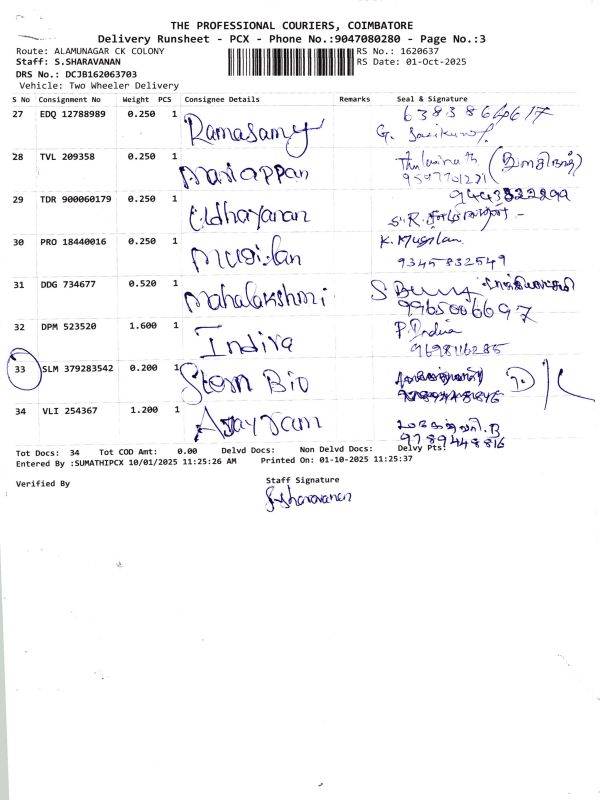 THE PROFESSIONAL COURIERS, COIMBATORE
Delivery Runsheet - PCX - Phone No.:9047080280 - Page No.:3
Route: ALAMUNAGAR CK COLONY RS No.: 1620637
Staff: S.SHARAVANAN RS Date: 01-Oct-2025
DRS No.: DCJB162063703
Vehicle: Two Wheeler Delivery
S No Consignment No Weight PCS Consignee Details Remarks Seal & Signature
27 EDQ 12788989 0.250 1 Ramasamy 6383864617
G.
28 TVL 209358 0.250 1 Mariappan
9597701271
29 TDR 900060179 0.250 1 Udhayanan 9443322299
S.R.
30 PRO 18440016 0.250 1 Mugilan K. Mugilan
9345832549
31 DDG 734677 0.520 1 Mahalakshmi S.
9965006697
32 DPM 523520 1.600 1 Indira P. Indira
9698116285
33 SLM 379283542 0.200 1 Stem Bio
34 VLI 254367 1.200 1 Ajay ram
9789448816
Tot Docs: 34 Tot COD Amt: 0.00 Delvd Docs: Non Delvd Docs: Delvy Pts:
Entered By :SUMATHIPCX 10/01/2025 11:25:26 AM Printed On: 01-10-2025 11:25:37
Verified By Staff Signature
S.sharavanan